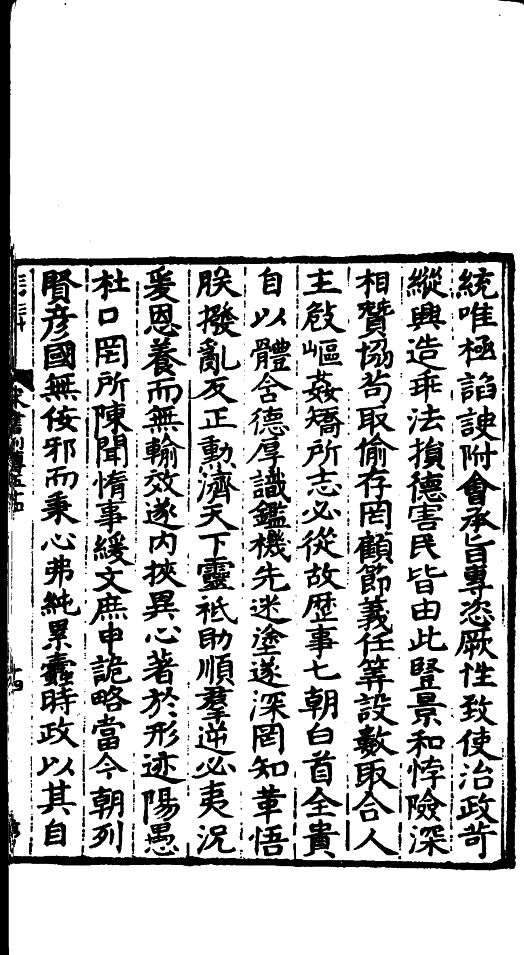 統唯極諂諛附會承旨專恣厥性致使治政苛
縱興造乖法損德害民皆由此豎景和悖險深
相贊協苟取偷存罔顧節義任筭設數取合人
主敧嶇姦矯所志必從故歷事七朝白首全貴
自以體含德厚識鑑機先迷塗遂深罔知革悟
朕撥亂反正勳濟天下靈祇助順羣逆必夷況
爰恩養而無輸效遂內挾異心著於形迹陽愚
杜口罔所陳聞惰事緩文庶申詭略當今朝列
賢彥國無佞邪而秉心弗純累蠧時政以其自